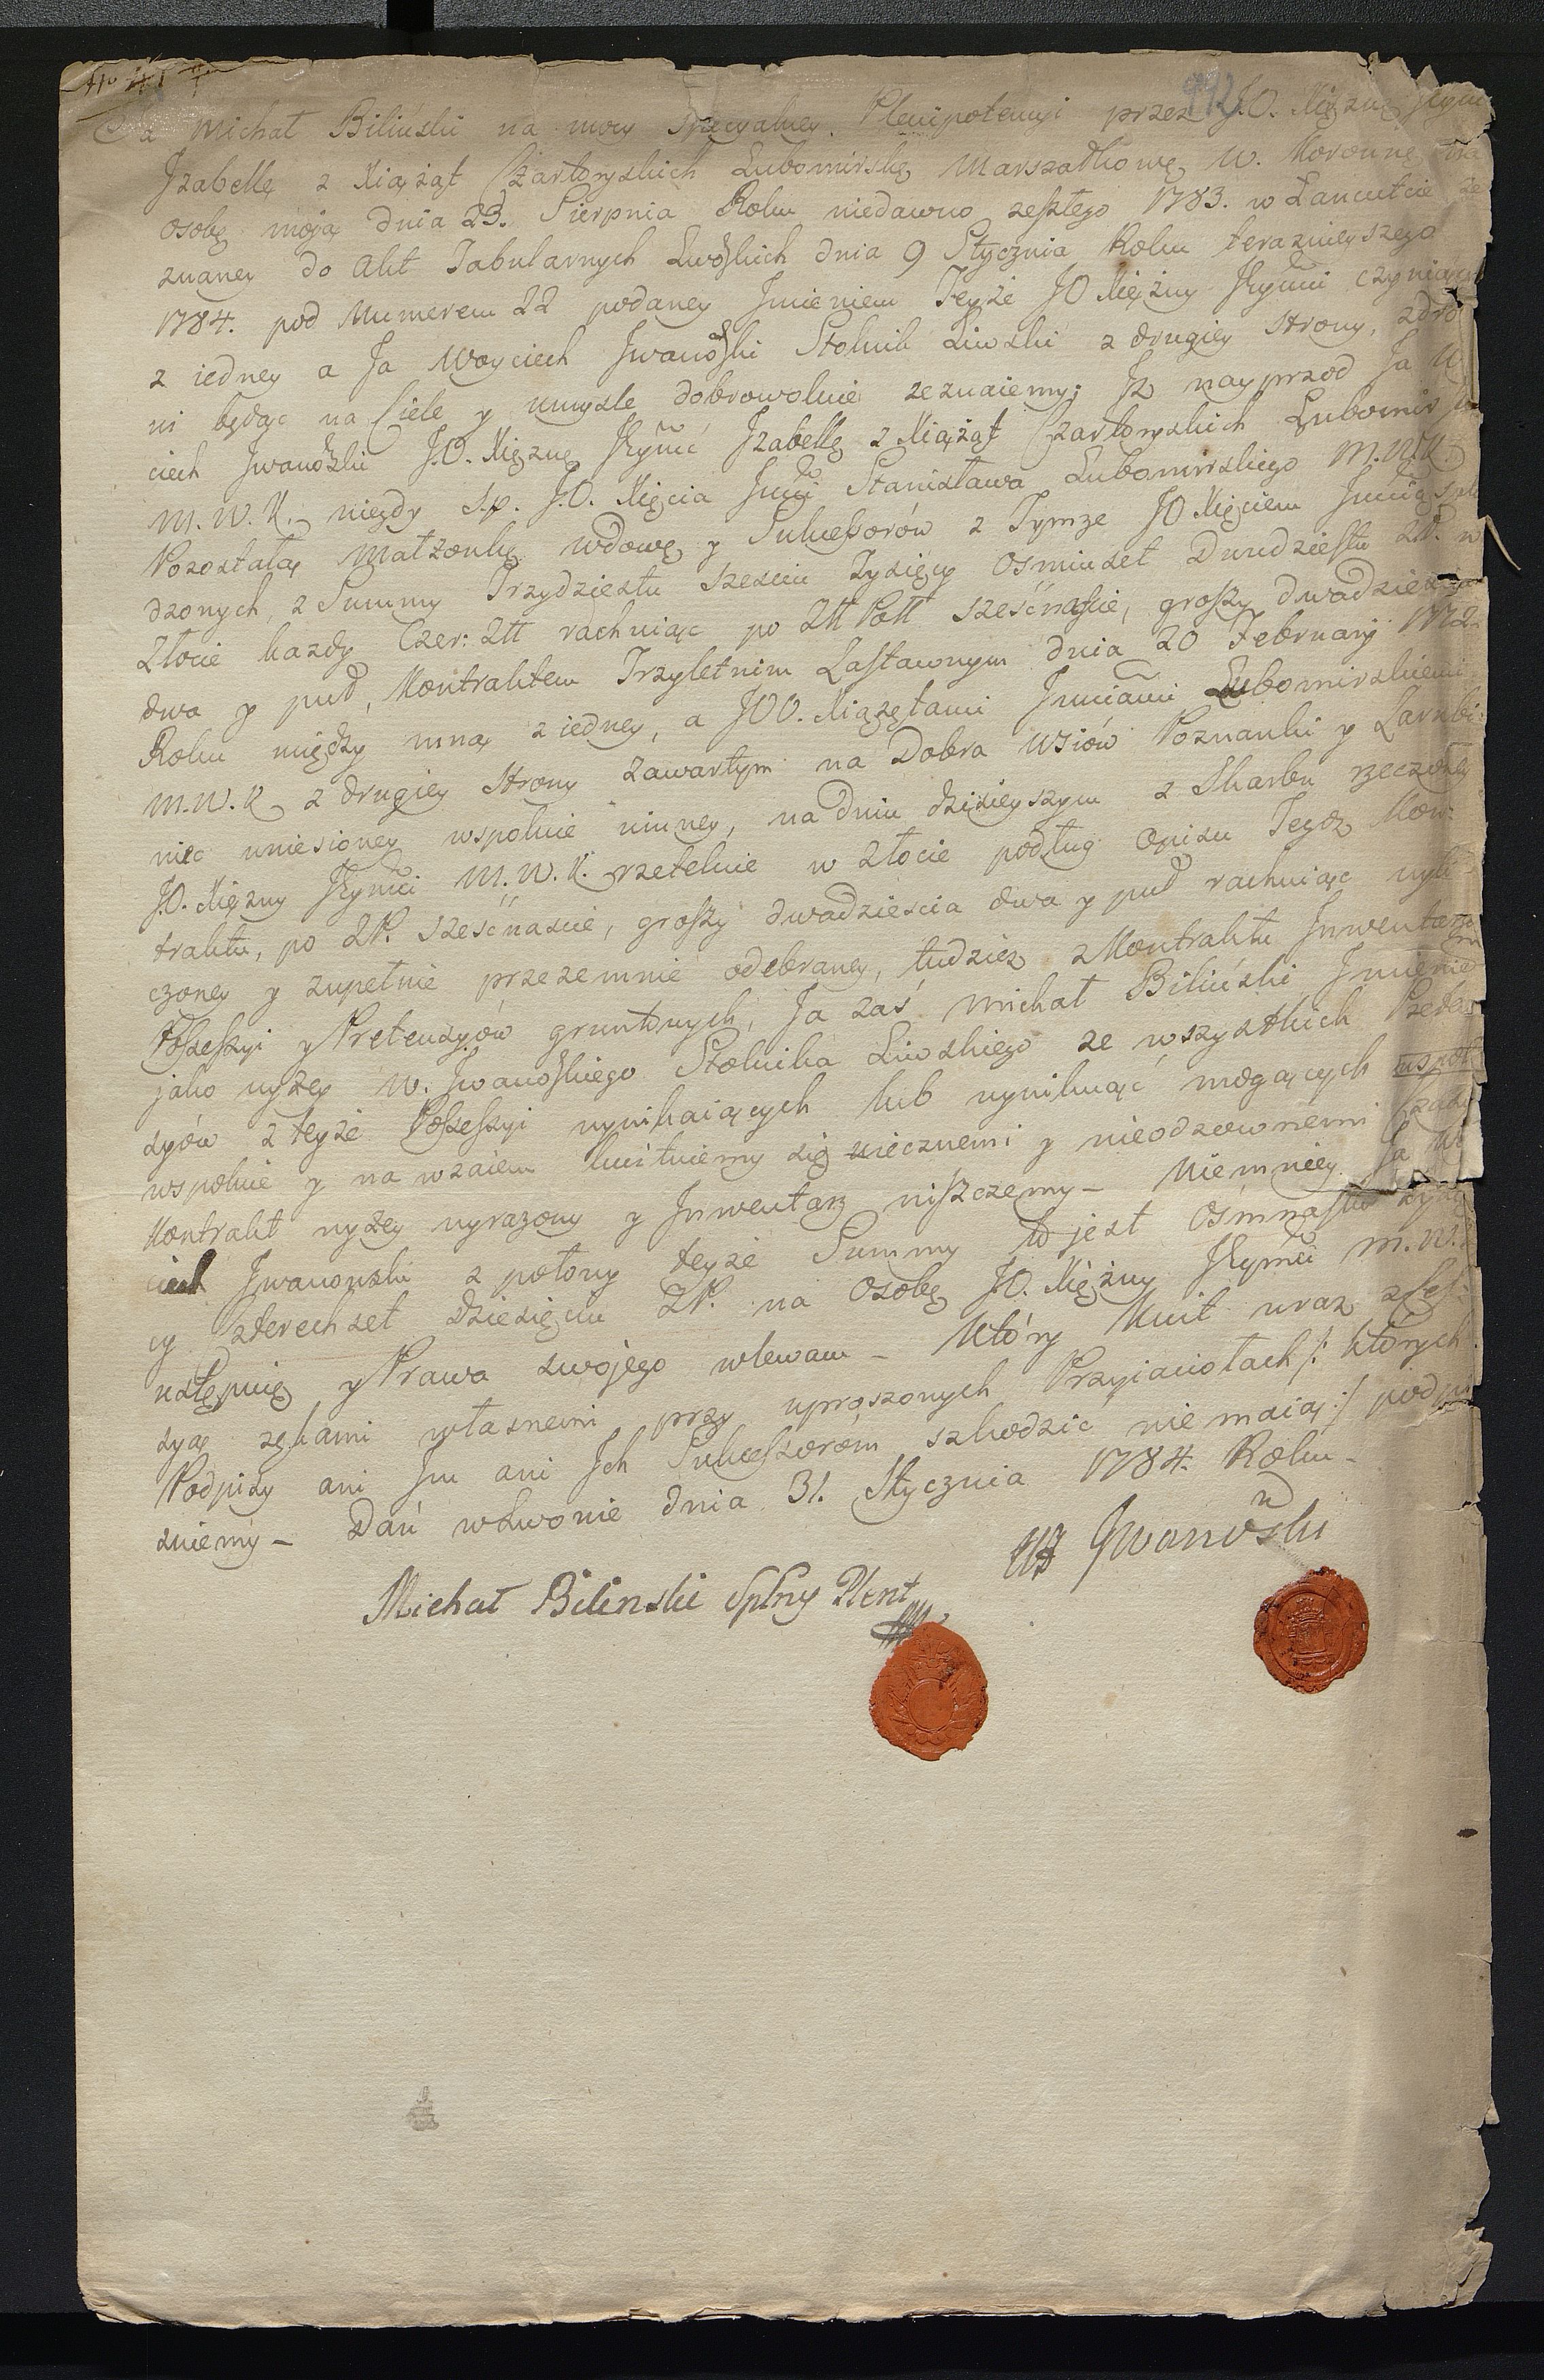 Ja Michał Biliński na mocy Specyalney Plenipotencyi przez J.O. Xiężnę Jeym
Jzabellę z Xiążąt Czartoryskich Lubomirskę Marszałkowę W. Koronnę na
osobę moię dnia 23. Sierpnia Roku niedawno zeszłego 1783. w Łancucie ze
znaney do Akt Tabularnych Lwoskich dnia 9 Stycznia Roku teraznieyszego
1784. pod Numerem 22 podaney Jmieniem Teyże JO Xiężny Jeymci czyniący
z iedney a Ja Woyciech Jwanoski Stolnik Liwski z drugiey strony, zdro
wi będąc na Ciele y umysle dobrowolnie zeznaiemy; Jż nayprzod Ja Woy
ciech Jwanoski J.O. Xiężnę Jeymć Jzabellę z Xiążąt Czartoryskich Lubomir
M.W.K. niegdy s.p. J.O. Xięcia Jmci Stanisława Lubomirskiego M.W.K.
Pozostałą Małżonkę wdowę y Sukcessorów z Tymże JO Xięciem Jmcią spło
dzonych, z Summy Trzydziestu szesciu Tysięcy Osmiuset Dwudziestu ZP. w
Złocie każdy Czer: Złł rachuiąc po Złł Poll szesćnascie, groszy dwadziescia
dwa y puł, Kontraktem Trzyletnim Zastawnym dnia 20 February 1772
Roku między mną z iedney, a JOO. Xiążętami Jmciami Lubomirskiemi
M.W.K z drugiey strony zawartym na Dobra Wsiów Poznanki y Zarubi:
niec wniesioney wspolnie winney, na dniu dzisieyszym z Skarbu rzeczoney
J.O. Xiężny Jeymci M.W.K. rzetelnie w Złocie podług Opisu Tegoż Kon:
traktu, po ZP. szesćnascie, groszy dwadziescia dwa y puł rachuiąc wyli
czoney y zupełnie przezemnie odebraney, tudzież z Kontraktu Jnwentarza
Possessyi y Pretensyów gruntowych, Ja zaś Michał Biliński Jmieniem
jako wyżey W. Jwanoskiego Stolnika Liwskiego ze wszystkich Preten
syów z teyże Possessyi wynikaiących lub wyniknąć mogących
wspolnie y na wzaiem kwituiemy się wiecznemi y nieodzownemi czasy
Kontrakt wyżey wyrażony y Jnwentarz niszczemy – Niemniey Ja Woy
ciech Jwanowski z połowy teyże Summy to jest Osmnastu tysię
cy czterechset dziesięciu ZP. na Osobę JO. Xiężny Jeymci M.W.K
ustępuię y Prawa swojego wlewam – Który Kwit wraz z Ces
syą rękami własnemi przy uproszonych Przyjaciołach /: których
Podpisy ani Jm ani Jch Sukcessorom szkodzić nie maią :/ podpi
suiemy – Dań w Lwowie dnia 31. Stycznia 1784. Roku –
W Jwanoski
Michał Bilinski Splny Plent